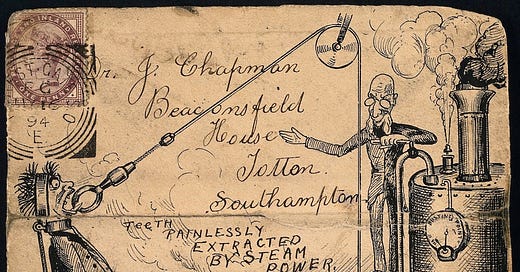 Dr. J. Chapman
Beaconsfield
House
Totton.
Southampton
TEETH PAINLESSLY
EXTRACTED
BY STEAM
POWER.
94